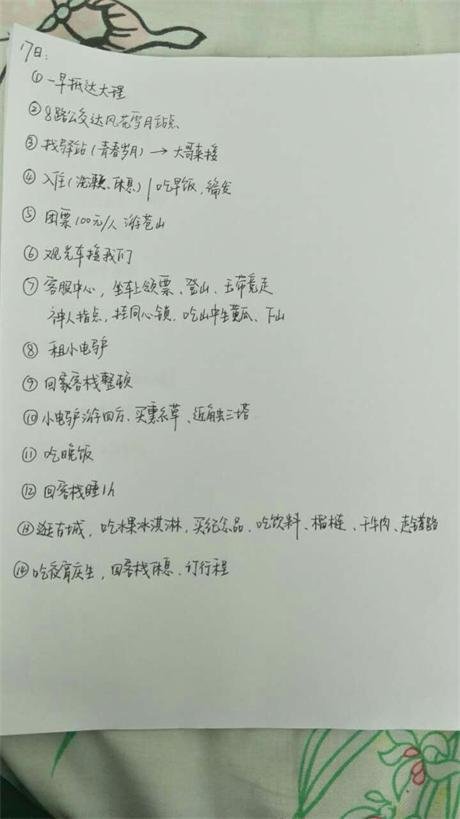 17日：
① 一早抵达大理
② 8路公交达风花雪月站点
③ 找驿站（青春岁月）→ 大哥来接
④ 入住（洗漱、休息）| 吃早饭，编发
⑤ 团票100元/人 游苍山
⑥ 观光车接我们
⑦ 客服中心，坐车上领票、登山、玉带竟走
神人指点，挂同心锁、吃山中生黄瓜、下山
⑧ 租小电驴
⑨ 回家客栈整顿
⑩ 小电驴游四方、买熏衣草、近触三塔
⑪ 吃晚饭
⑫ 回客栈睡1h
⑬ 逛古城，吃水果冰淇淋，买纪念品、吃饮料、榴梿、干牛肉、走错路
⑭ 吃夜宵庆生，回客栈休息、订行程